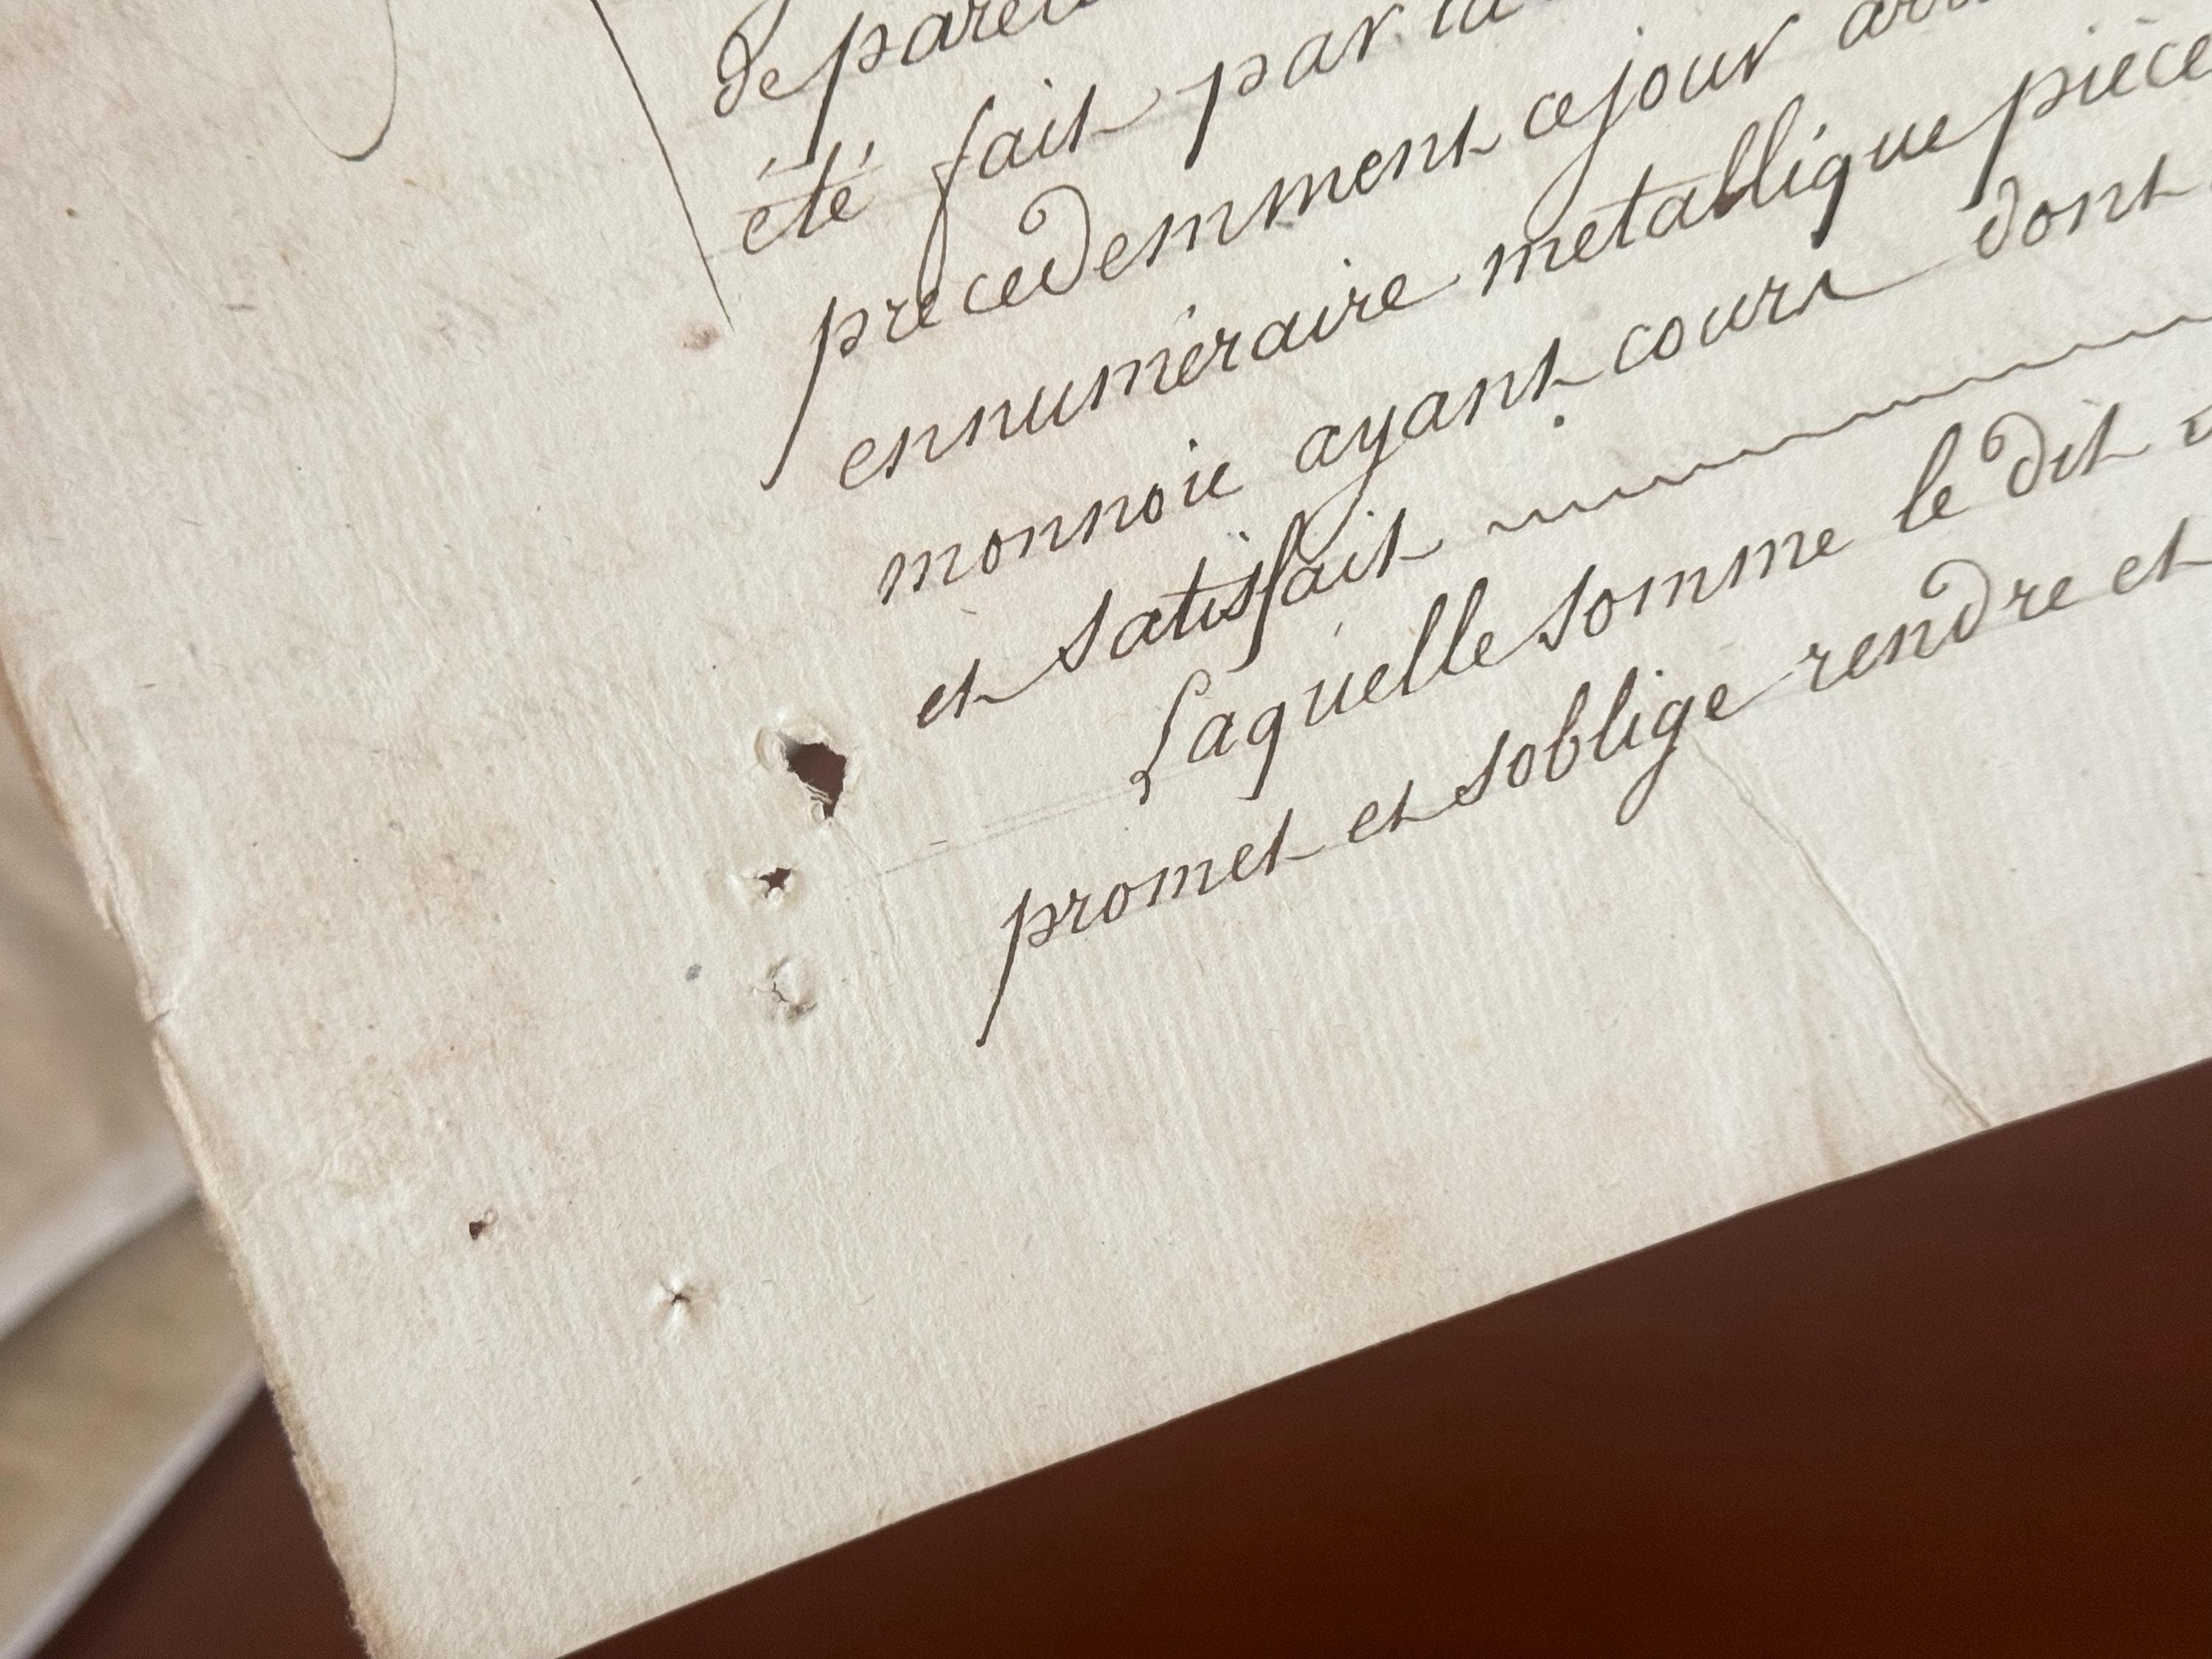 de
été fait par
precedemment cejour
ennuméraire metallique
monnoie ayant cours dont
et satisfait
Laquelle somme le dit
promet et soblige rendre et